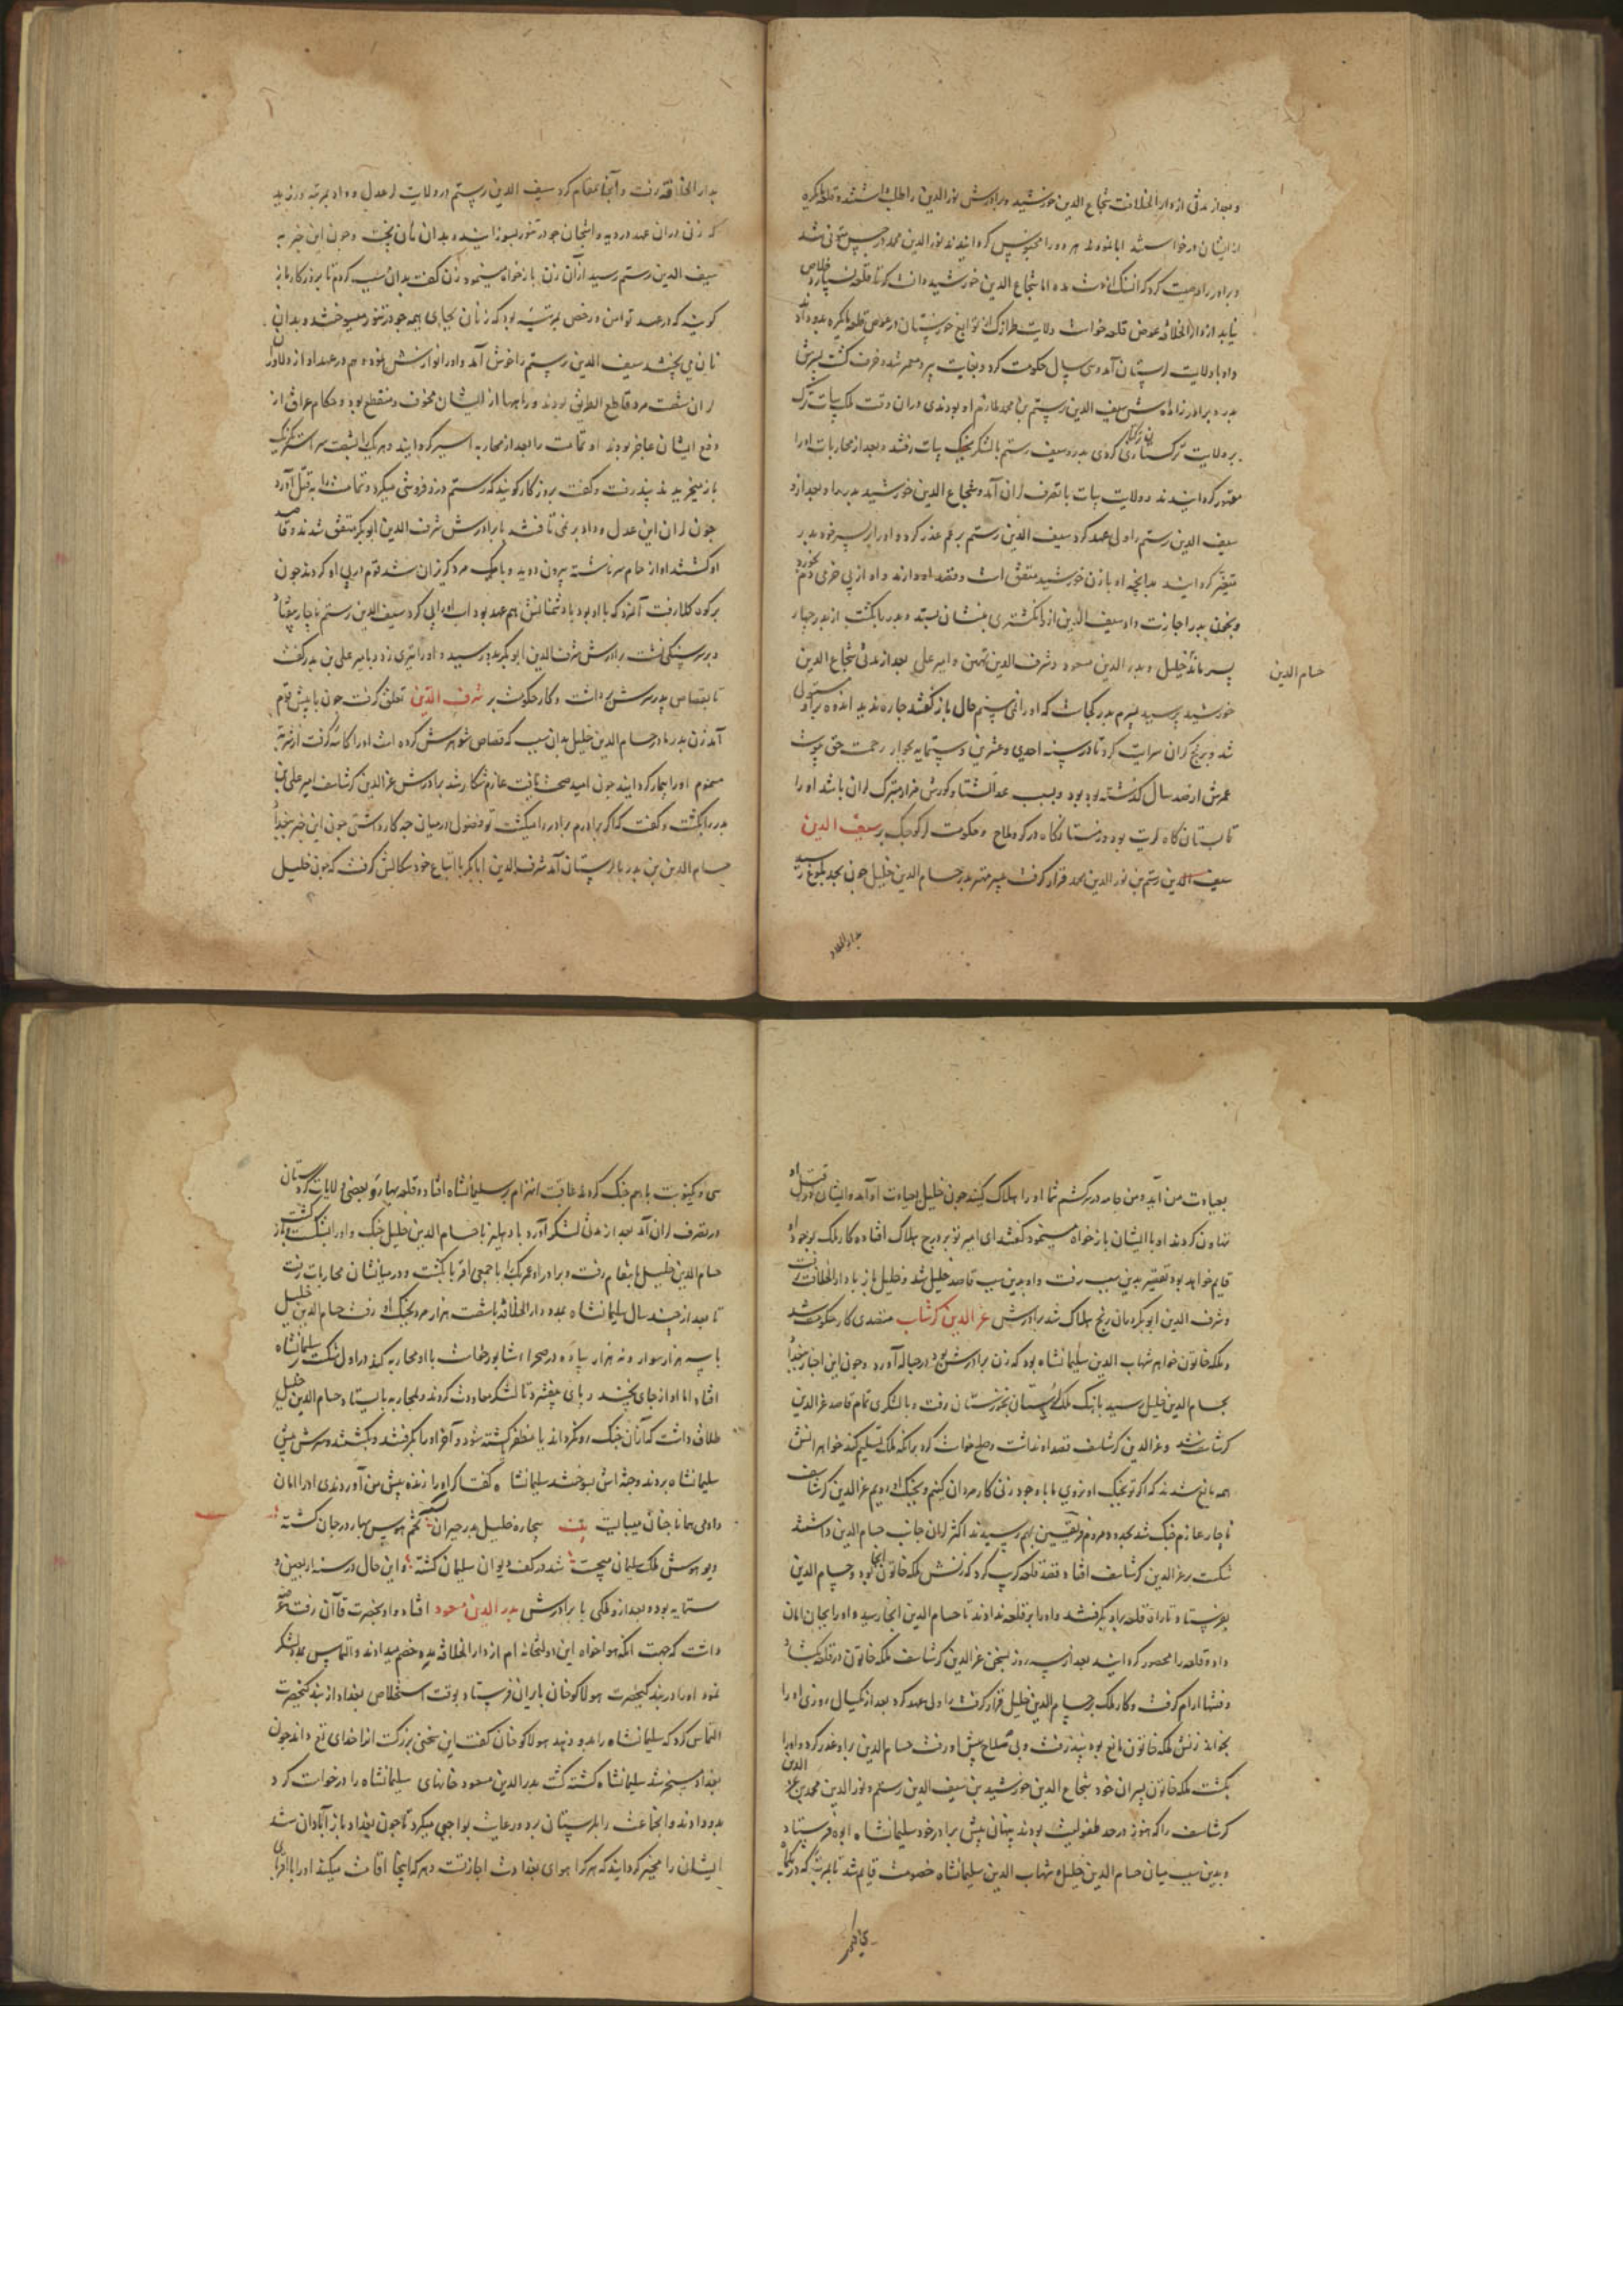 و بعد از مدتی از دار الخلافت شجاع الدین خورشید و برادرش نور الدین را طلب داشتند و قلعه مانکره
از ایشان درخواستند ابا نمودند هر دو را محبوس کردانیدند نور الدین محمد در حبس متوفی شد
و برادر را وصیت کرد که از سنگ از دست مده اما شجاع الدین خورشید دانست که تا قلعه نسپارد خلاص
نیابد از دار الخلافه عوض قلعه خواست ولایت طرازک از توابع خوزستان در عوض قلعه مانکره بدو دادند
و او با ولایت لرستان آمد و سی سال حکومت کرد و بغایت پیر و معمر شد و خرف کشت پسرش
بدر و برادر زاده‌اش سیف الدین رستم بن محمد ملازم او بودندی در ان وقت ملک بیات ترک
بر ولایت ترکستازی کردی بدر و سیف رستم با لشکر بجنک بیات رفتند و بعد از محاربات او را
مقهور کردانیدند و ولایت بیات با تصرف لران آمد و شجاع الدین خورشید بدر را و بعد از و
سیف الدین رستم را ولی عهد کرد سیف الدین رستم بر عم غدر کرد و او را بر پسر خود بدر
متغیر کردانید بدانچه او با زن خورشید متفق است و قصد او دارند و او از پی خرفی دم بخورد
و بخون بدر اجازت داد سیف الدین از و انکشتری بنشان بستد و بدر را بکشت از بدر چهار
پسر ماند خلیل و بدر الدین مسعود و شرف الدین تهمتن و امیر علی بعد از مدتی شجاع الدین
حسام الدین
خورشید پرسید پسرم بدر کجاست که او را نمی بینم حال باز کفتند چاره ندید اندوه بر او مستولی
شد و برنج کران سرایت کرد تا در سنه احدی و عشرین و ستمایه بجوار رحمت حق پیوست
عمرش از صد سال کذشته بود و بسبب عدالتش تا و کورش مزار متبرک لران باشد او را
تابستان کاه کریت بود و زمستانکاه در کرد ملاح و حکومت لر کوچک بر سیف الدین
سیف الدین رستم بن نور الدین محمد قرار کرفت پسر مهتر بدر حسام الدین خلیل چون بحد بلوغ رسید
بدار الخلافه
بدار الخلافه رفت و آنجا مقام کرد سیف الدین رستم در ولایت لر عدل و داد بمرتبه ورزید
که زنی در ان عهد در دیه واشجان جو در تنور بسوزانید و بدان نان پخت و چون این خبر به
سیف الدین رستم رسید از آن زن بازخواست مینمود زن کفت بدان سبب کردم تا بروزکار باز
کویند که در عهد تو امن و رخص بمرتبه بود که زنان بجای هیمه جو در تنور میسوختند و بدان
نان می پختند سیف الدین رستم را خوش آمد و او را نوازش نمود و هم در عهد او از دلاوران
لران شصت مرد قاطع الطریق بودند و راهها از ایشان مخوف و منقطع بود و حکام عراق از
دفع ایشان عاجز بودند او تمامت را بعد از محاربه اسیر کردانید و هر یک را بشصت سر استر یکرنک
باز میخریدند نپذیرفت و کفت بروزکار کویند که رستم دزد فروشی میکرد و تمامت را به قتل آورد
چون لران این عدل و داد بر نمی تافتند با برادرش شرف الدین ابو بکر متفق شدند و قصد
او کشتند او از حمام سر ناشسته بیرون دوید و با یک مرد کریزان شد قوم در پی او کردند چون
بر کوه کلار رفت آنمرد که با او بود با دشمنانش هم عهد بود اب او را پی کرد سیف الدین رستم ناچار بیفتاد
و بر سر سنکی نشست برادرش شرف الدین ابو بکر بدو رسید و او را تیری زد و بامیر علی بن بدر کفت
تا بقصاص پدر سرش برداشت و کار حکومت بر شرف الدین تعلق کرفت چون با پیش قوم
آمد زن بدر مادر حسام الدین خلیل بدان سبب که قصاص شوهرش کرده است او را کاسه کرفت از شربت
مسموم او را بیمار کردانید چون امید صحت یافت عازم شکار شد برادرش عز الدین کرشاسف امیر علی بن
بدر را بکشت و کفت که اکر برادرم برادر را میکشت تو فضول در میان چه کار داشتی چون این خبر ببغداد
حسام الدین بن بدر بلرستان آمد شرف الدین ابا بکر با اتباع خود سکالش کرفت که چون خلیل
بعیادت من آید و من جامه در سر کشم شما او را هلاک کنید چون خلیل بعیادت او آمد و ایشان در قتل او
تهاون کردند او با ایشان بازخواست مینمود کفتند ای امیر تو بر درج هلاک افتاده کار ملک بوجود او
قایم خواهد بود تقصیر بدین سبب رفت و او بدین سبب قاصد خلیل شد و خلیل باز با دار الخلافت رفت
و شرف الدین ابو بکر در ان رنج هلاک شد برادرش عز الدین کرشاسب متصدی کار حکومت شد
و ملکه خاتون خواهر شهاب الدین سلیمانشاه بود که زن برادرش بود در حباله آورد و چون این اخبار ببغداد
بحسام الدین خلیل رسید باهنک ملک لرستان بخوزستان رفت و با لشکری تمام قاصد عز الدین
کرشاسف شد و عز الدین کرشاسف قصد او نداشت و صلح خواست کرد برانکه ملک تسلیم کند خواهرانش
همه مانع شدند که اکر تو بجنک او نروی ما با وجود زنی کار مردان کنیم و بجنک او رویم عز الدین کرشاسف
ناچار عازم جنک شد بحدود و مردم فریقین بهم رسیدند اکثر لران جانب حسام الدین داشتند
شکست بر عز الدین کرشاسف افتاد قصد قلعه کرب کرد که زنش ملکه خاتون آنجا بود و حسام الدین
بفرستاد تا راه قلعه برو بکرفتند و او را بر قلعه ندادند تا حسام الدین آنجا رسید و او را بجان امان
داد و قلعه را محصور کردانید بعد از سه روز بسخن عز الدین کرشاسف ملکه خاتون در قلعه بکشاد
و فتنها ارام کرفت و کار ملک بر حسام الدین خلیل قرار کرفت او را ولی عهد کرد بعد از یکسال روزی او را
بخواند زنش ملکه خاتون مانع بود نپذیرفت و بی سلاح پیش او رفت حسام الدین برو غدر کرد و او را
بکشت ملکه خاتون پسران خود شجاع الدین خورشید بن سیف الدین رستم و نور الدین محمد بن عز الدین
کرشاسف را که هنوز در حد طفولیت بودند پنهان پیش برادر خود سلیمانشاه ابوه فرستاد
و بدین سبب میان حسام الدین خلیل و شهاب الدین سلیمانشاه خصومت قایم شد تا بمرتبه که در یکماه
سی و یکنوبت باهم جنک کردند عاقبت انهزام بر سلیمانشاه افتاد و قلعه بهار و بعضی ولایات کردستان
در تصرف لران آمد بعد از مدتی لشکر آورد با دهلیز با حسام الدین خلیل جنک و او را بشکست و باز کشت
حسام الدین خلیل بانتقام رفت و برادر او عمر بک را با جمعی اقربا بکشت و در میانشان محاربات رفت
تا بعد از چند سال سلیمانشاه بمدد دار الخلافه با شصت هزار مرد بجنک او رفت حسام الدین خلیل
با سه هزار سوار و نه هزار پیاده در صحراء شابورخواست با او محاربه کرد در اول شکست بر سلیمانشاه
افتاد اما او از جای نجنبید و پای بیفشرد تا لشکر معاودت کردند و بمحاربه بایستاد و حسام الدین خلیل
طلاق داشت که از آن جنک رو نکرداند یا مظفر کشته شود و آخر او را بکرفتند و بکشتند و سرش پیش
سلیمانشاه بردند و جثه اش بسوختند سلیمانشاه کفت اکر او را زنده پیش من آوردندی او را امان
دادمی همانا چنان میبایست بیت بیچاره خلیل بدر حیران کشته تخم هوس بهار در جان کشته
دیو هوسش ملک سلیمان میجست شد در کف دیوان سلیمان کشته و این حال در سنه اربعین و
ستمایه بود و بعد از و ملکی با برادرش بدر الدین مسعود افتاد و او بحضرت قاآن رفت و عرضه
داشت که جهت انکه هوا خواه این دولتخانه ام از دار الخلافه مدد خصم میدادند و التماس مدد لشکر
نمود او را در بندکی حضرت هولاکو خان بایران فرستاد بوقت استخلاص بغداد از بندکی حضرت
التماس کرد که سلیمانشاه را بدو دهند هولاکو خان کفت این سخنی بزرکست انرا خدای تع داند چون
بغداد مسخر شد سلیمانشاه کشته کشت بدر الدین مسعود خانهای سلیمانشاه را درخواست کرد
بدو دادند و انجماعت را بلرستان برد و رعایت بواجبی میکرد تا چون بغداد باز آبادان شد
ایشان را مخیر کردانید که هر کرا هوای بغداد است اجازتست و هر که اینجا اقامت میکند او را با اقربای